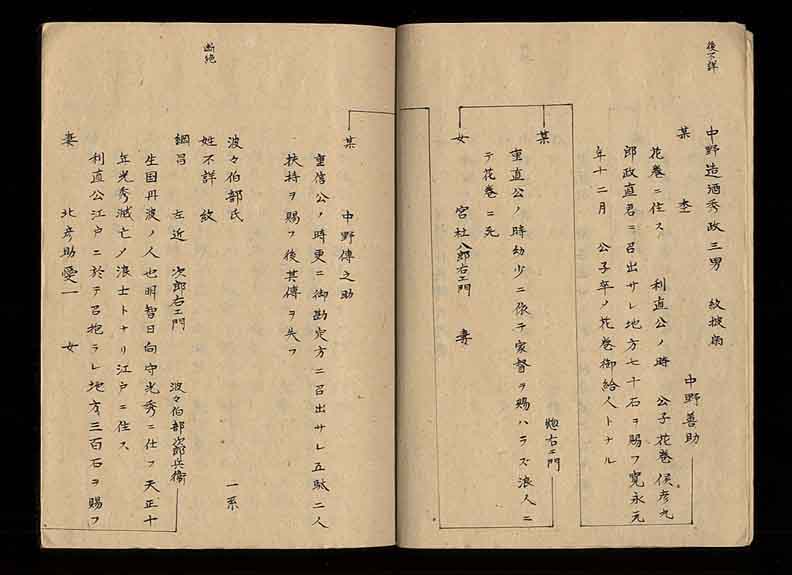 後不詳
中野造酒秀政三男 紋披扇
某 杢 中野善助
花巻ニ住ス 利直公ノ時 公子花巻侯彦九
郎政直君ニ召出サレ地方七十石ヲ賜フ寛永元
年十二月 公子卒ノ花巻御給人トナル
某 惣右エ門
重直公ノ時幼少ニ依テ家督ヲ賜ハラズ浪人ニ
テ花巻ニ死
女 宮杜八郎右エ門 妻
某 中野傳之助
重信公ノ時更ニ御勘定方ニ召出サレ五駄二人
扶持ヲ賜フ後其傳ヲ失フ
断絶
波々伯部氏 一系
姓不詳 紋
綱昌 左近 次郎右エ門 波々伯部次郎兵衛
生国丹波ノ人也明智日向守光秀ニ仕フ天正十
年光秀滅亡ノ浪士トナリ江戸ニ住ス
利直公江戸ニ於テ召抱ラレ地方三百石ヲ賜フ
妻 北彦助愛一 女